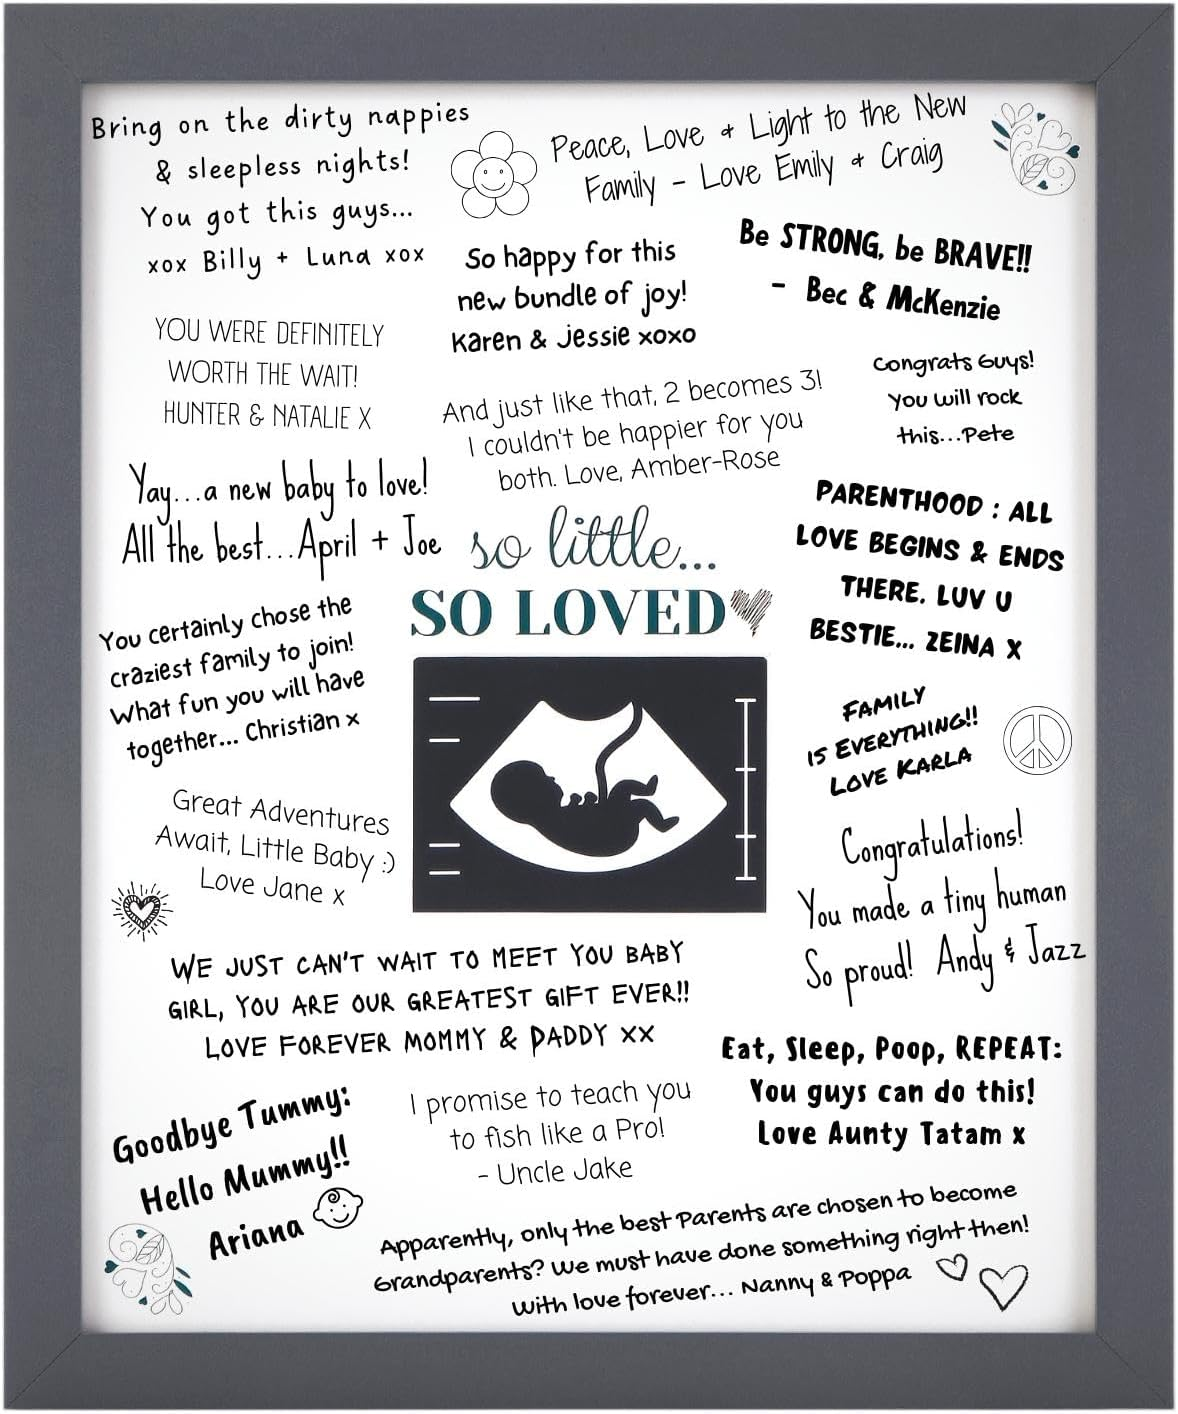 Bring on the dirty nappies
& sleepless nights!
You got this guys...
xox Billy + Luna xox
Peace, Love & Light to the New
Family - Love Emily & Craig
So happy for this
new bundle of joy!
Karen & Jessie xoxo
Be STRONG, be BRAVE!!
- Bec & McKenzie
YOU WERE DEFINITELY
WORTH THE WAIT!
HUNTER & NATALIE X
And just like that, 2 becomes 3!
I couldn't be happier for you
both. Love, Amber-Rose
Congrats Guys!
You will rock
this...Pete
Yay...a new baby to love!
All the best...April + Joe
so little...
SO LOVED
PARENTHOOD : ALL
LOVE BEGINS & ENDS
THERE. LUV U
BESTIE... ZEINA X
You certainly chose the
craziest family to join!
What fun you will have
together... Christian x
FAMILY
IS EVERYTHING!!
LOVE KARLA
Great Adventures
Await, Little Baby :)
Love Jane x
Congratulations!
You made a tiny human
So proud! Andy & Jazz
WE JUST CAN'T WAIT TO MEET YOU BABY
GIRL, YOU ARE OUR GREATEST GIFT EVER!!
LOVE FOREVER MOMMY & DADDY XX
Eat, Sleep, Poop, REPEAT:
You guys can do this!
Love Aunty Tatam x
Goodbye Tummy:
Hello Mummy!!
Ariana
I promise to teach you
to fish like a Pro!
- Uncle Jake
Apparently, only the best Parents are chosen to become
Grandparents? We must have done something right then!
With love forever... Nanny & Poppa